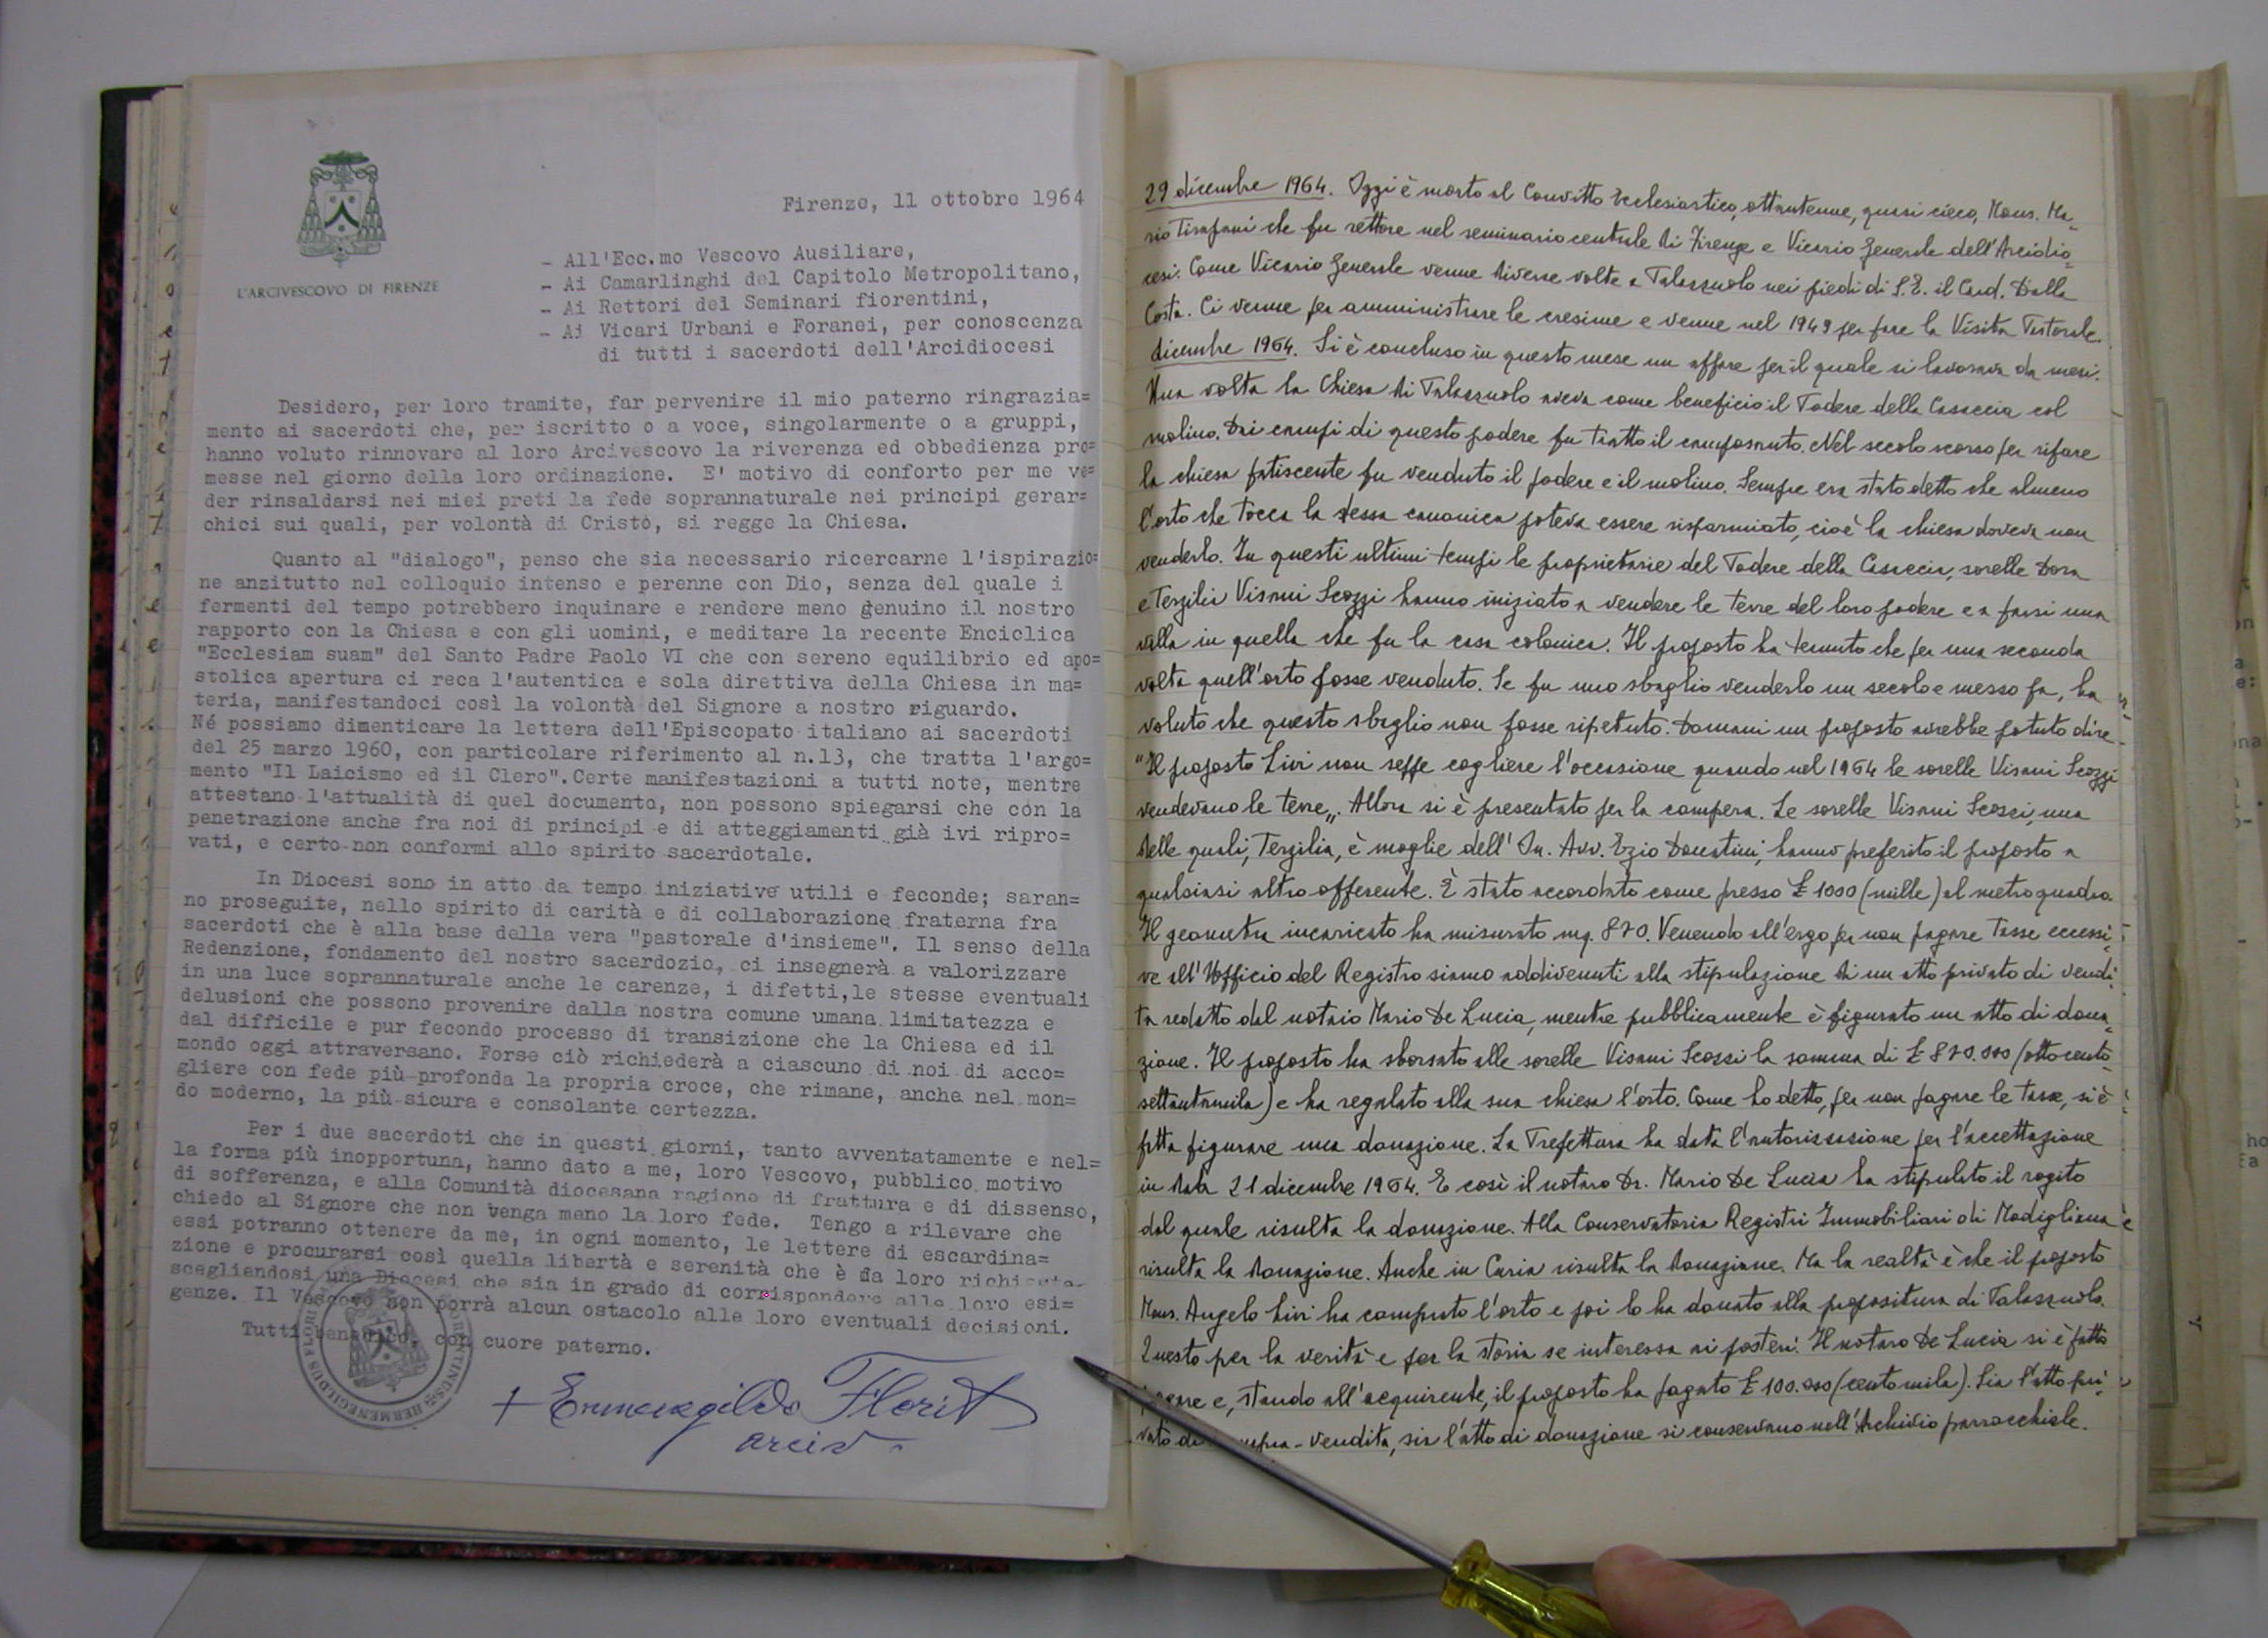 L'ARCIVESCOVO DI FIRENZE
Firenze, 11 ottobre 1964
- All'Ecc.mo Vescovo Ausiliare,
- Ai Camarlinghi del Capitolo Metropolitano,
- Ai Rettori dei Seminari fiorentini,
- Ai Vicari Urbani e Foranei, per conoscenza
di tutti i sacerdoti dell'Arcidiocesi
Desidero, per loro tramite, far pervenire il mio paterno ringrazia=
mento ai sacerdoti che, per iscritto o a voce, singolarmente o a gruppi,
hanno voluto rinnovare al loro Arcivescovo la riverenza ed obbedienza pro=
messe nel giorno della loro ordinazione. E' motivo di conforto per me ve=
der rinsaldarsi nei miei preti la fede soprannaturale nei principi gerar=
chici sui quali, per volontà di Cristo, si regge la Chiesa.
Quanto al "dialogo", penso che sia necessario ricercarne l'ispirazio=
ne anzitutto nel colloquio intenso e perenne con Dio, senza del quale i
fermenti del tempo potrebbero inquinare e rendere meno genuino il nostro
rapporto con la Chiesa e con gli uomini, e meditare la recente Enciclica
"Ecclesiam suam" del Santo Padre Paolo VI che con sereno equilibrio ed apo=
stolica apertura ci reca l'autentica e sola direttiva della Chiesa in ma=
teria, manifestandoci così la volontà del Signore a nostro riguardo.
Né possiamo dimenticare la lettera dell'Episcopato italiano ai sacerdoti
del 25 marzo 1960, con particolare riferimento al n.13, che tratta l'argo=
mento "Il Laicismo ed il Clero".Certe manifestazioni a tutti note, mentre
attestano l'attualità di quel documento, non possono spiegarsi che con la
penetrazione anche fra noi di principi e di atteggiamenti già ivi ripro=
vati, e certo non conformi allo spirito sacerdotale.
In Diocesi sono in atto da tempo iniziative utili e feconde; saran=
no proseguite, nello spirito di carità e di collaborazione fraterna fra
sacerdoti che è alla base della vera "pastorale d'insieme". Il senso della
Redenzione, fondamento del nostro sacerdozio, ci insegnerà a valorizzare
in una luce soprannaturale anche le carenze, i difetti,le stesse eventuali
delusioni che possono provenire dalla nostra comune umana limitatezza e
dal difficile e pur fecondo processo di transizione che la Chiesa ed il
mondo oggi attraversano. Forse ciò richiederà a ciascuno di noi di acco=
gliere con fede più profonda la propria croce, che rimane, anche nel mon=
do moderno, la più sicura e consolante certezza.
Per i due sacerdoti che in questi giorni, tanto avventatamente e nel=
la forma più inopportuna, hanno dato a me, loro Vescovo, pubblico motivo
di sofferenza, e alla Comunità diocesana ragione di frattura e di dissenso,
chiedo al Signore che non venga meno la loro fede. Tengo a rilevare che
essi potranno ottenere da me, in ogni momento, le lettere di escardina=
zione e procurarsi così quella libertà e serenità che è da loro richiesta
scegliendosi una Diocesi che sia in grado di corrispondere alle loro esi=
genze. Il Vescovo non porrà alcun ostacolo alle loro eventuali decisioni.
Tutti benedico, con cuore paterno.
+ Ermenegildo Florit
arciv.
29 dicembre 1964. Oggi è morto al Convitto Ecclesiastico, ottantenne, quasi cieco, Mons. Ma=
rio Tirapani che fu rettore nel seminario centrale di Firenze e Vicario Generale dell'Arcidio=
cesi. Come Vicario Generale venne diverse volte a Palazzuolo nei piedi di S.E. il Card. Dalla
Costa. Ci venne per amministrare le cresime e venne nel 1949 per fare la Visita Pastorale.
dicembre 1964. Si è concluso in questo mese un affare per il quale si lavorava da mesi.
Una volta la Chiesa di Palazzuolo aveva come beneficio il Podere della Casaccia col
molino. Dai campi di questo podere fu tratto il camposanto. Nel secolo scorso per rifare
la chiesa fatiscente fu venduto il podere e il molino. Sempre era stato detto che almeno
l'orto che tocca la stessa canonica poteva essere risparmiato, cioè la chiesa doveva non
venderlo. In questi ultimi tempi le proprietarie del Podere della Casaccia, sorelle Dora
e Tersilia Visani Scozzi hanno iniziato a vendere le terre del loro podere e a farsi una
villa in quella che fu la casa colonica. Il proposto ha temuto che per una seconda
volta quell'orto fosse venduto. Se fu uno sbaglio venderlo un secolo e messo fa, ha
voluto che questo sbaglio non fosse ripetuto. Domani un proposto avrebbe potuto dire
"Il proposto Livi non seppe cogliere l'occasione quando nel 1964 le sorelle Visani Scozzi
vendevano le terre„. Allora si è presentato per la compera. Le sorelle Visani Scozzi, una
delle quali, Tersilia, è moglie dell'On. Avv. Ezio Donatini, hanno preferito il proposto a
qualsiasi altro offerente. È stato accordato come prezzo £ 1000 (mille) al metro quadro.
Il geometra incaricato ha misurato mq. 870. Venendo all'ergo per non pagare tasse eccessi=
ve all'Ufficio del Registro siamo addivenuti alla stipulazione di un atto privato di vendi=
ta redatto dal notaio Mario De Lucia, mentre pubblicamente è figurato un atto di dona=
zione. Il proposto ha sborsato alle sorelle Visani Scozzi la somma di £ 870.000 (ottocento=
settantamila) e ha regalato alla sua chiesa l'orto. Come ho detto, per non pagare le tasse, si è
fatta figurare una donazione. La Prefettura ha data l'autorizzazione per l'accettazione
in data 21 dicembre 1964. E così il notaro Dr. Mario De Lucia ha stipulato il rogito
dal quale risulta la donazione. Alla Conservatoria Registri Immobiliari di Modigliana
risulta la donazione. Anche in Curia risulta la donazione. Ma la realtà è che il proposto
Mons. Angelo Livi ha comprato l'orto e poi lo ha donato alla propositura di Palazzuolo.
Questo per la verità e per la storia se interessa ai posteri. Il notaro De Lucia si è fatto
e, stando all'acquirente, il proposto ha pagato £ 100.000 (cento mila). Sia l'atto pri=
vato di compra-vendita, sia l'atto di donazione si conservano nell'Archivio parrocchiale.